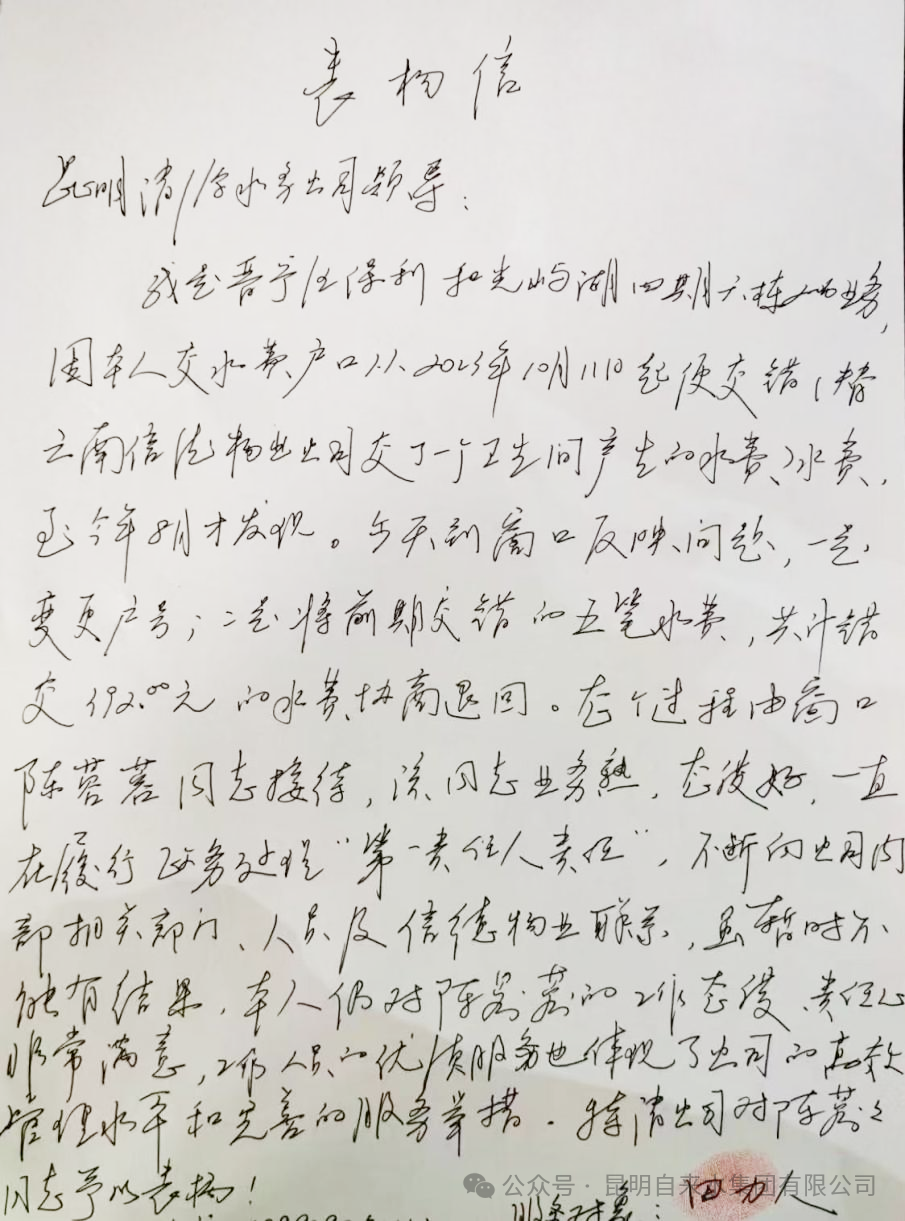 表扬信
昆明清源水务公司领导：
我是晋宁区保利和光屿湖四期六栋的业务，
因本人交水费户口从2023年10月11日起便交错（替
云南信德物业公司交了一个卫生间产生的水费）水费，
至今年8月才发现。今天到窗口反映问题，一是
变更户号；二是将前期交错的五笔水费，共计错
交192.00元的水费协商退回。整个过程由窗口
陈蓉蓉同志接待，该同志业务熟，态度好，一直
在履行政务处理“第一责任人责任”，不断向公司内
部相关部门、人员及信德物业联系，虽暂时不
能有结果，本人仍对陈蓉蓉的工作态度、责任心
非常满意，工作人员的优质服务也体现了公司的高效
管理水平和完善的服务举措。特请公司对陈蓉蓉
同志予以表扬！
服务对象：田力人
公众号·昆明自来水集团有限公司